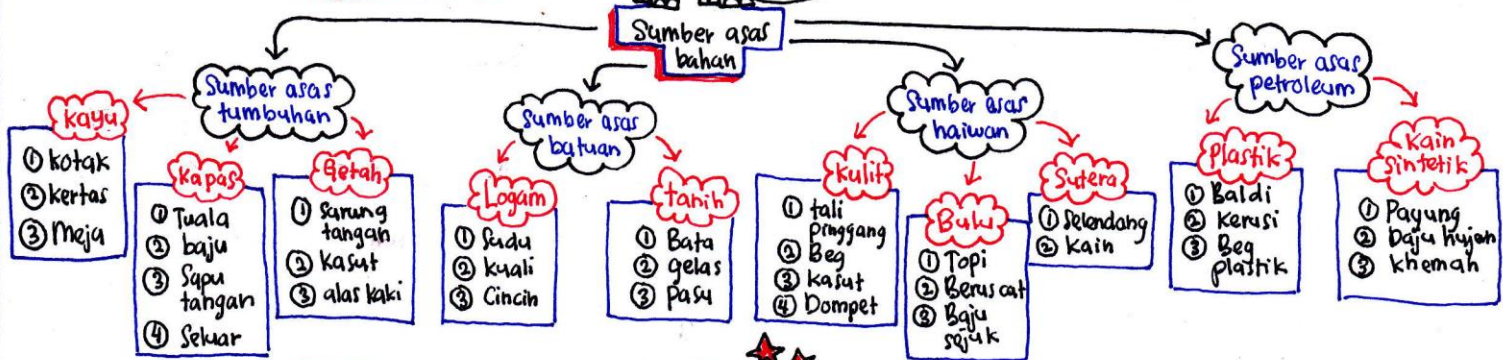 Sumber asas
bahan
Sumber asas
tumbuhan
Kayu
① kotak
② kertas
③ Meja
Kapas
① Tuala
② baju
③ Sapu
tangan
④ Seluar
Getah
① Sarung
tangan
② Kasut
③ alas kaki
Sumber asas
batuan
Logam
① Sudu
② Kuali
③ Cincin
tanih
① Bata
② gelas
③ Pasu
Sumber asas
haiwan
Kulit
① tali
pinggang
② Beg
③ Kasut
④ Dompet
Bulu
① Topi
② Berus cat
③ Baju
sejuk
Sutera
① Selendang
② Kain
Sumber asas
petroleum
Plastik
① Baldi
② Kerusi
③ Beg
plastik
Kain
Sintetik
① Payung
② Baju hujan
③ khemah